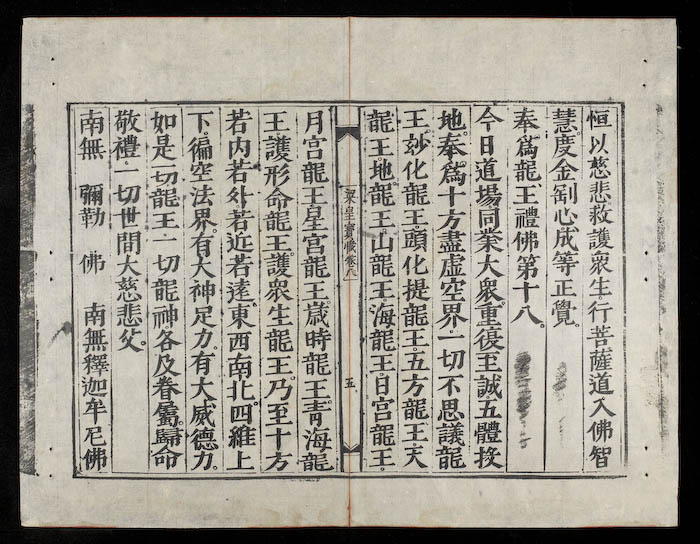 恒以慈悲救護衆生。行菩薩道入佛智
慧度金剛心成等正覺。
奉爲龍王禮佛第十八。
今日道場同業大衆。重復至誠五體投
地。奉爲十方盡虛空界。一切不思議龍
王。妙化龍王。頭化提龍王。五方龍王。天
龍王。地龍王。山龍王。海龍王。日宮龍王。
梁皇寶懺卷八
五
月宮龍王。星宮龍王。歲時龍王。青海龍
王。護形命龍王。護衆生龍王。乃至十方
若內若外。若近若遠。東西南北。四維上
下。徧空法界。有大神足力。有大威德力。
如是一切龍王。一切龍神。各及眷屬。歸命
敬禮一切世間大慈悲父。
南無 彌勒 佛 南無釋迦牟尼佛